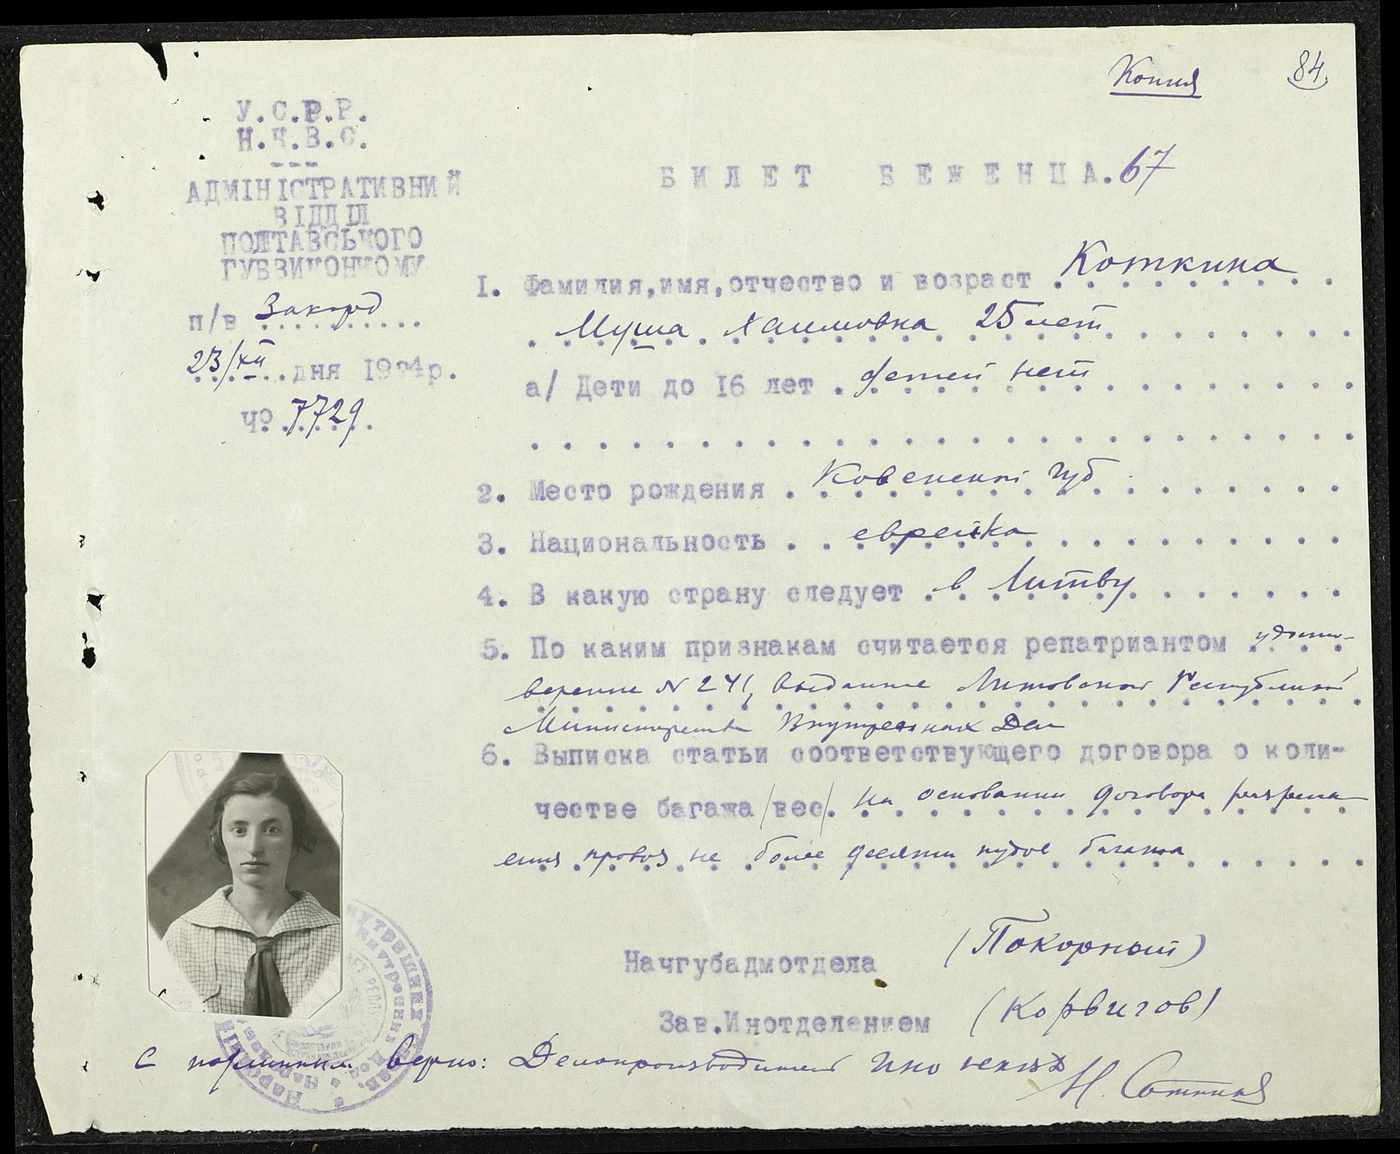 Копия
84
У.С.Р.Р.
Н.К.В.С.
АДМІНІСТРАТИВНИЙ
ВІДДІЛ
ПОЛТАВСЬКОГО
ГУБВИКОНКОМУ
п/в Закорд
23/XII дня 1924р.
Чо 7729
БИЛЕТ БЕЖЕНЦА. 67
1. Фамилия,имя,отчество и возраст Коткина
Муша Хаимовна 25 лет
а/ Дети до 16 лет детей нет
2. Место рождения Ковенской губ
3. Национальность еврейка
4. В какую страну следует в Литву
5. По каким признакам считается репатриантом удосто-
верение N 241, выданное Литовской Республикой
Министерства Внутренних Дел
6. Выписка статьи соответствующего договора о коли-
честве багажа /вес/. На основании договора разреша
ения провоз не более десяти пудов багажа
Начгубадмотдела (Покорный)
Зав.Инотделением (Корвигов)
С подлинным верно: Делопроизводитель